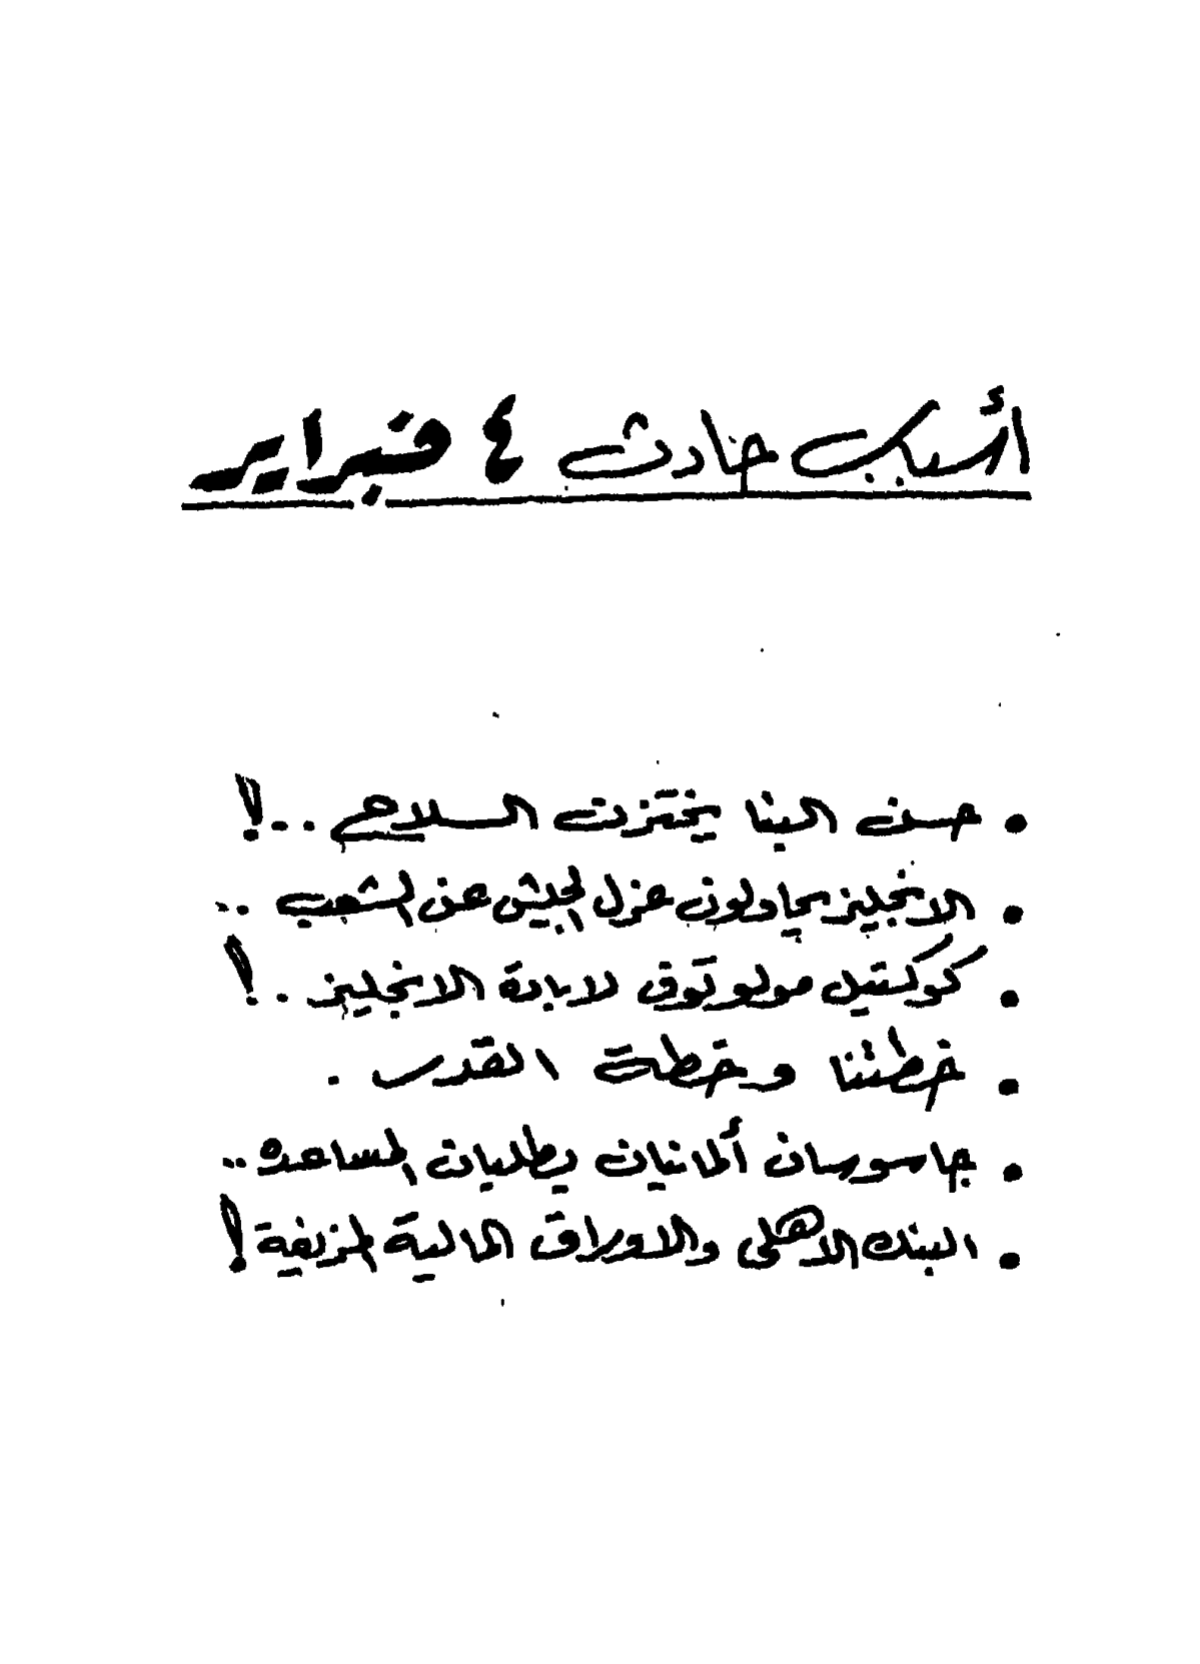 أسباب حادث ٤ فبراير
• حسن البنا يختزن السلاح . . . !
• الانجليز يحاولون عزل الجيش عن الشعب . . .
• كوكتيل مولوتوف لابادة الانجليز . . !
• خطتنا وخطة القدر .
• جاسوسان ألمانيان يطلبان المساعده . .
• البنك الاهلى والاوراق المالية المزيفة !